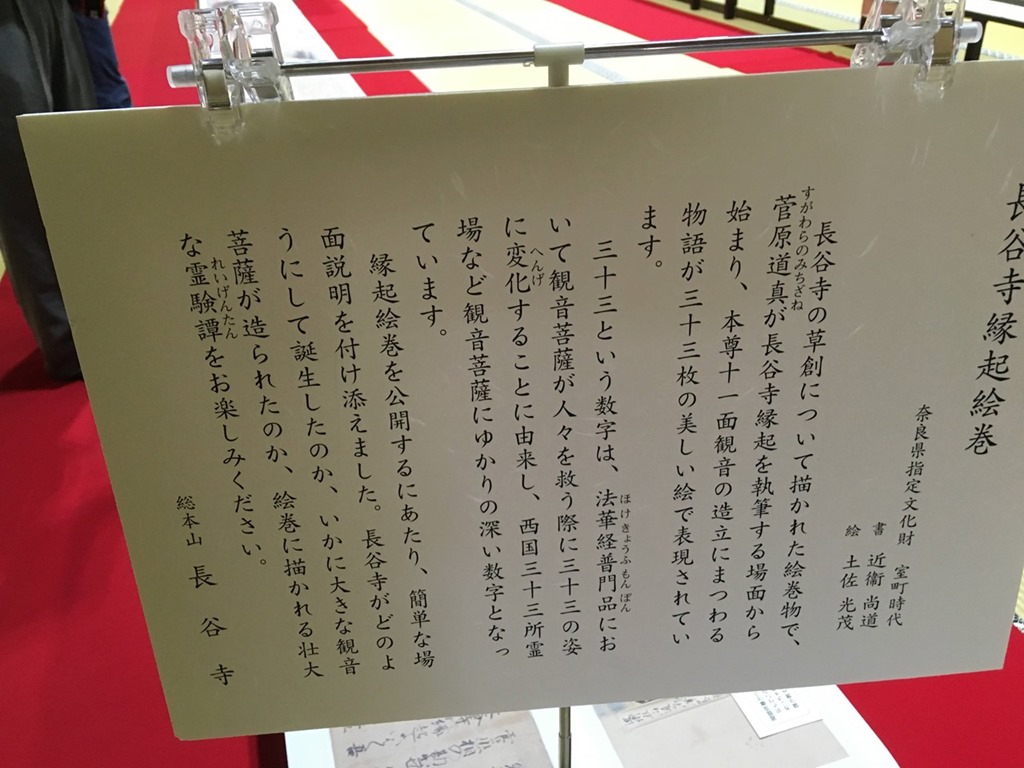 長谷寺縁起絵巻
奈良県指定文化財　室町時代
書　近衞尚道
絵　土佐光茂
長谷寺の草創について描かれた絵巻物で、
菅原道真が長谷寺縁起を執筆する場面から
すがわらのみちざね
始まり、本尊十一面観音の造立にまつわる
物語が三十三枚の美しい絵で表現されてい
ます。
三十三という数字は、法華経普門品にお
ほけきょうふもんぼん
いて観音菩薩が人々を救う際に三十三の姿
に変化することに由来し、西国三十三所霊
へんげ
場など観音菩薩にゆかりの深い数字となっ
ています。
縁起絵巻を公開するにあたり、簡単な場
面説明を付け添えました。長谷寺がどのよ
うにして誕生したのか、いかに大きな観音
菩薩が造られたのか、絵巻に描かれる壮大
な霊験譚をお楽しみください。
れいげんたん
総本山　長谷寺